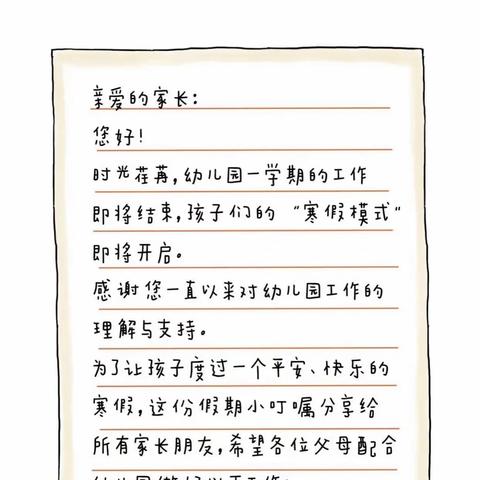 亲爱的家长：
您好！
时光荏苒，幼儿园一学期的工作
即将结束，孩子们的“寒假模式“
即将开启。
感谢您一直以来对幼儿园工作的
理解与支持。
为了让孩子度过一个平安、快乐的
寒假，这份假期小叮嘱分享给
所有家长朋友，希望各位父母配合